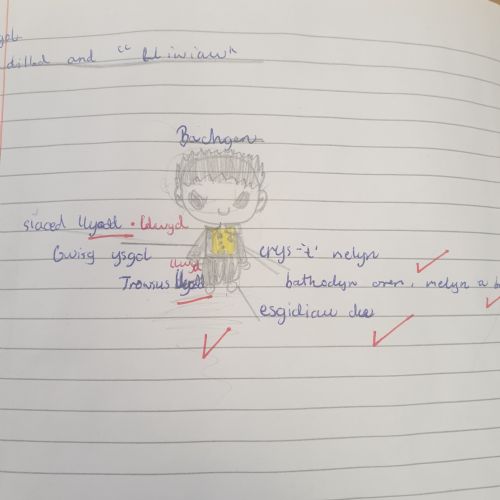 dillad and "lliwiau"
Bachgen
siaced llwyd
Gwisg ysgol
crys-'t' melyn
llwyd
Trowsus
bathodyn oren, melyn a b
esgidiau du